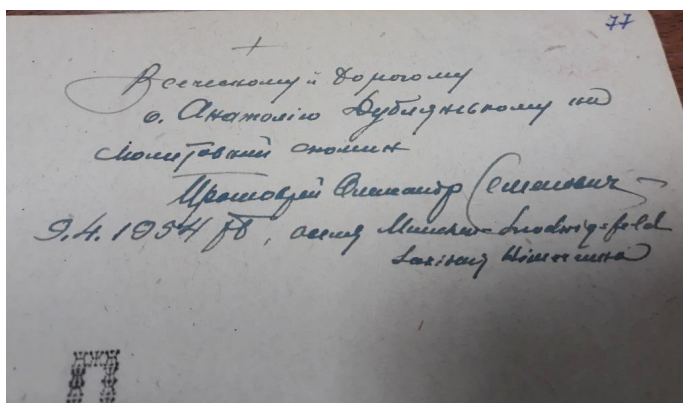 77
+
Всечесному й Дорогому
о. Анатолію Дублянському на
молитовний спомин
Протоєрей Олександр Семенович
9.4.1954 р, оселя München-Ludwigsfeld
Західня Німеччина
П